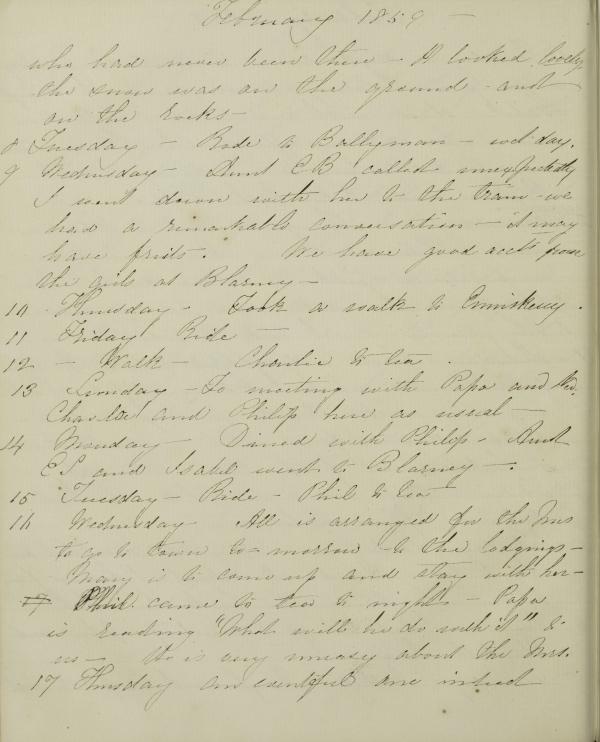 February 1859 –
who had never been there – It looked lovely
the snow was on the ground – and
on the rocks –
8 Tuesday – Rode to Ballyman – wet day.
9 Wednesday – Aunt EB called unexpectedly
I went down with her to the tram – we
had a remarkable conversation – it may
have fruits. We have good acct from
the girls at Blarney –
10 Thursday – Took a walk to Enniskerry.
11 Friday Ride –
12 – Walk – Charlie to tea.
13 Sunday – To meeting with Papa and
Charlie and Philip here as usual –
14 Monday – Dined with Philip – Aunt
ES and Isabel went to Blarney –.
15 Tuesday – Ride – Phil to tea
16 Wednesday All is arranged for the Mrs
to go to town to=morrow to the lodgings –
Mary is to come up and stay with her –
17 Phil came to tea to night – Papa
is reading "What will he do with it" to
us – He is very uneasy about the Mrs.
17 Thursday an eventful one indeed